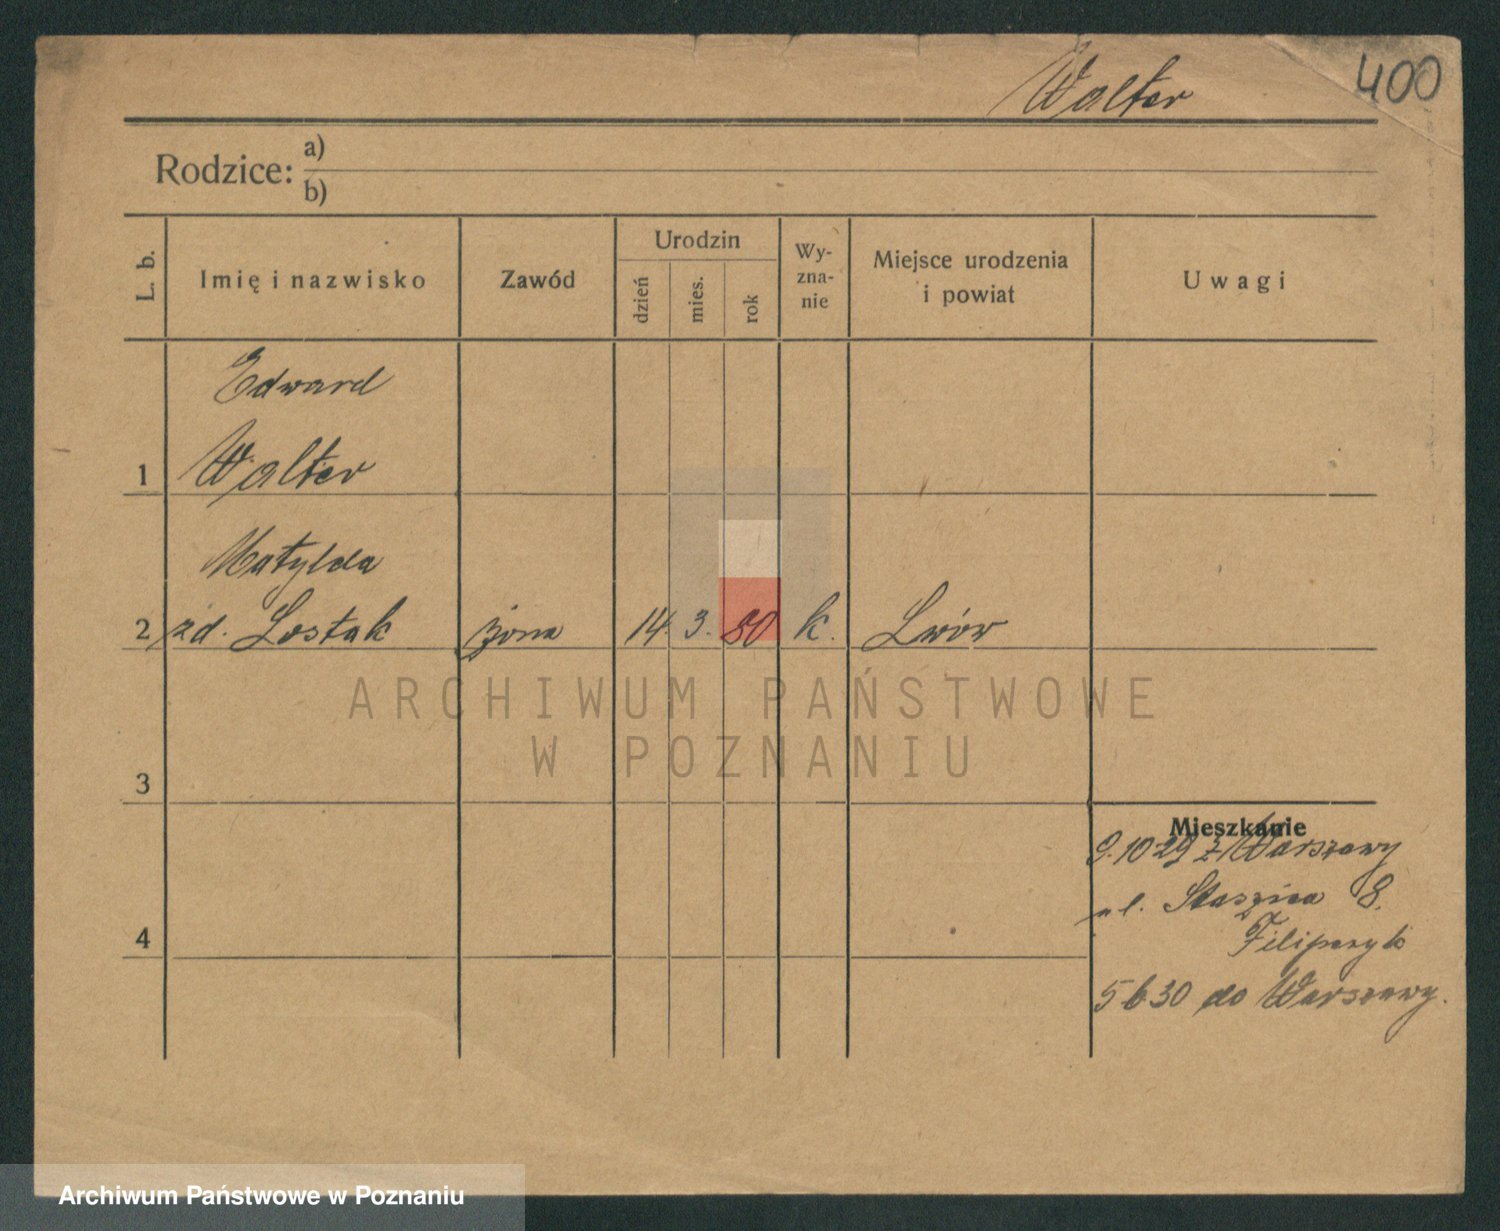 400
Walter
Rodzice: a)
b)
L. b.
Imię i nazwisko
Zawód
Urodzin
dzień
mies.
rok
Wy-
zna-
nie
Miejsce urodzenia
i powiat
Uwagi
Edward
1 Walter
Matylda
2 zd. Lostak żona 14. 3. 80 k. Lwów
ARCHIWUM PAŃSTWOWE
W POZNANIU
3
Mieszkanie
9.10 29 z Warszawy
ul. Staszica 8.
4
Filipczyk
5 6 30 do Warszawy.
Archiwum Państwowe w Poznaniu